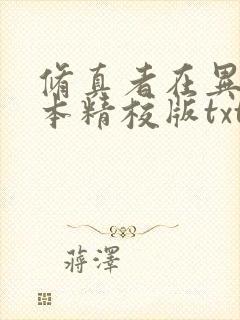 脩真者在異
本精校版txt
蔣澤